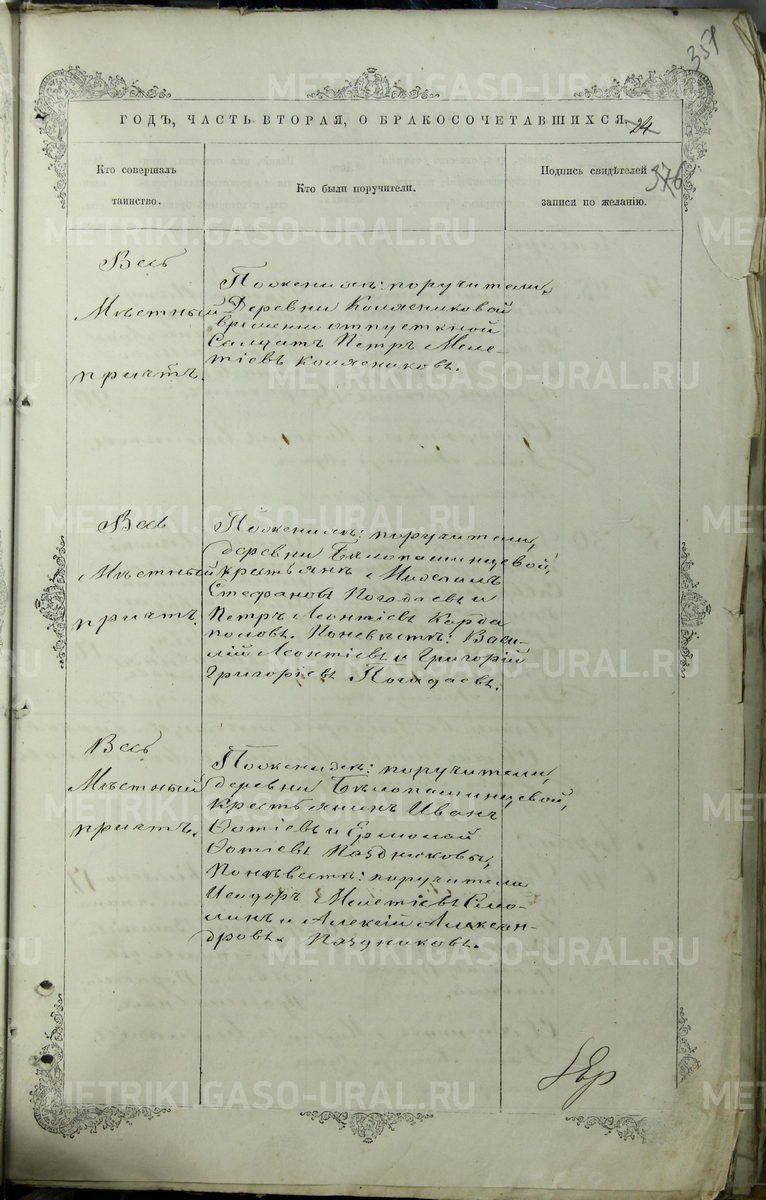 351
METRIKI.GASO-URAL.RU
ГОДЪ, ЧАСТЬ ВТОРАЯ, О БРАКОСОЧЕТАВШИХСЯ,
24
376
Кто совершалъ
таинство.
Кто были поручители.
Подпись свидѣтелей
записи по желанію.
Весь
Мѣстный
причтъ.
По женихѣ: поручители,
Деревни Колясниковой
временно отпускной
Салдатъ Петръ Меле-
тіевъ Колясниковъ.
Весь
Мѣстный
причтъ.
По женихѣ: поручители,
деревни
Стефановъ Погадаевъ и
Петръ Леонтіевъ Карга
половъ. По невѣстѣ: Васи-
лій Леонтіевъ и Григорій
Григорьевъ Погадаевъ.
Весь
Мѣстный
причтъ.
По женихѣ: поручители,
деревни Бѣлопашинцевой,
Крестьянинъ Иванъ
Фотіевъ и Ермолай
Фотіевъ Паздниковы,
По невѣстѣ: поручители
Исидоръ Мелетіевъ Смо-
линъ и Алексій Алексан-
дровъ Паздниковъ.